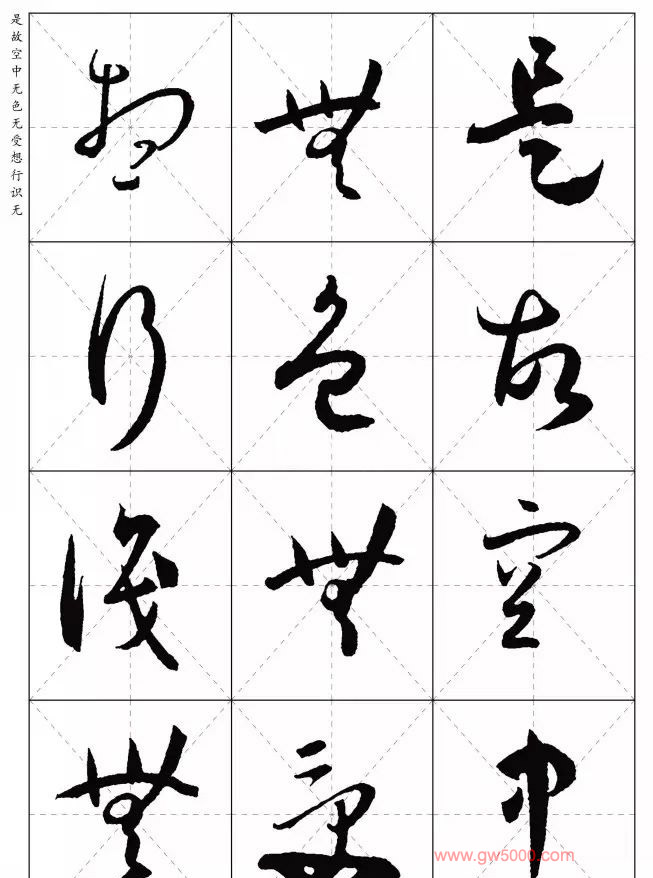 是故空中无色无受想行识无
是故空中
無色無受
想行識無
www.gw5000.com